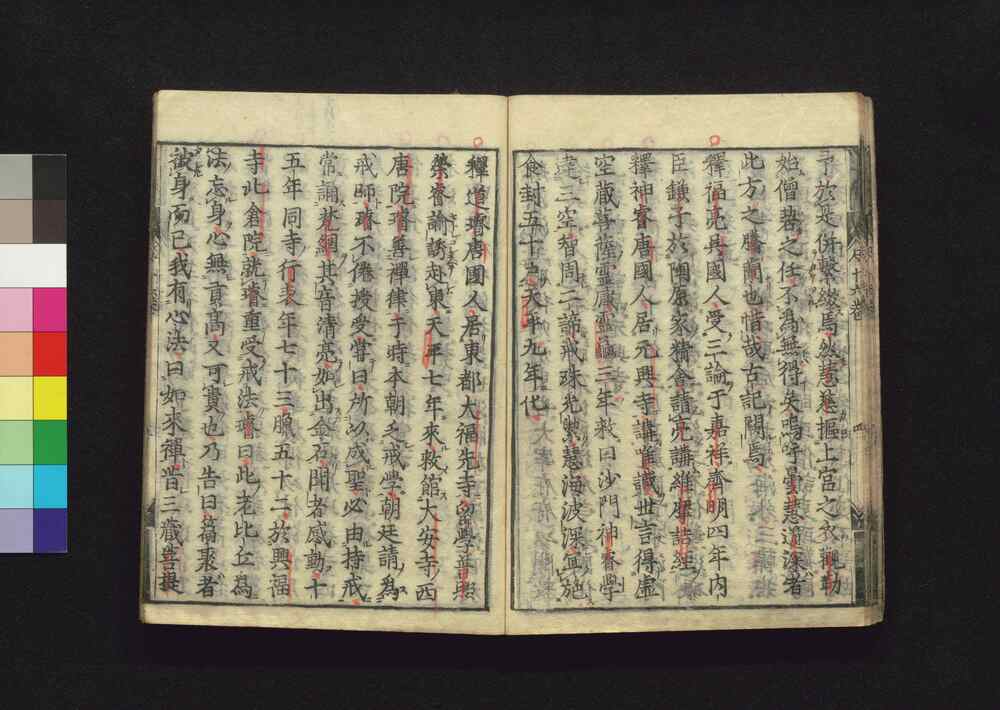 予於是併繫綴焉然慧慈摳上宮之衣觀勒
始僧菩之任不為無得失嗚呼曇慧道深者
此方之騰蘭也惜哉古記闕焉
釋福亮吳國人受三論于嘉祥齊明四年內
臣鎌子於陶原家精舍請亮講維摩詰經
釋神睿唐國人居元興寺講唯識世言得虛
空藏菩薩靈感靈龜三年敕曰沙門神睿學
達三空智周二諦戒珠光映慧海波深宜施
食封五十戶天平九年化
釋道璿唐國人居東都大福先寺留學普照
榮睿論誘赴東天平七年來敕館大安寺西
唐院璿善禪律于時本朝乏戒學朝廷請為
戒師璿不倦授受嘗曰所以成聖必由持戒
常誦梵網其音清亮如出金石聞者感動十
五年同寺行表年七十三臘五十二於興福
寺北倉院就璿重受戒法璿曰此老比丘為
法忘身心無貢高又可貴也乃告曰篇聚者
彼身而已我有心法曰如來禪昔三藏菩提
第十六卷
四